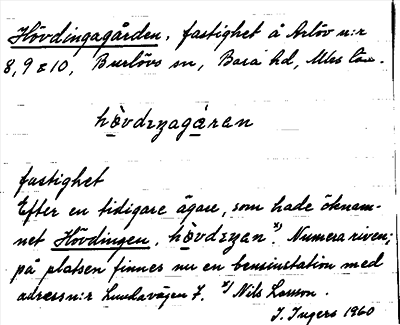 Hövdingagården, fastighet å Arlöv n:r
8, 9 & 10, Burlövs sn, Bara hd, Mlms län.
hòvdɪŋagáran
fastighet
Efter en tidigare ägare, som hade öknam-
net Hövdingen, hòvdɪŋan.ˣ⁾ Numera riven;
på platsen finnes nu en bensinstation med
adress n:r Lundavägen 7. ˣ⁾ Nils Larsson.
I. Ingers 1960